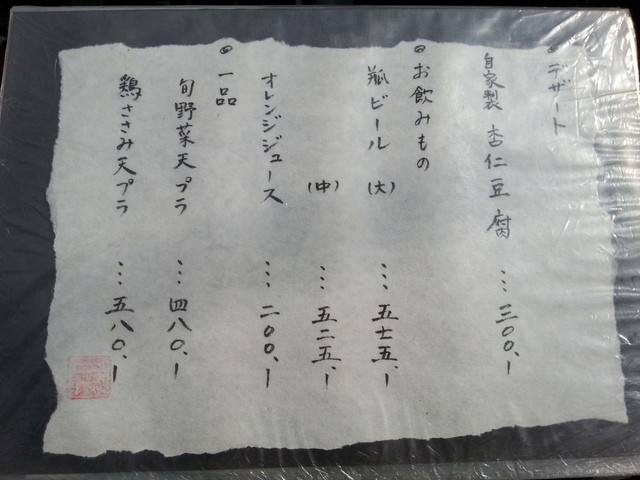 ◎デザート
自家製 杏仁豆腐 … 三〇〇.ー
◎お飲みもの
瓶ビール (大) … 五七五.ー
(中) … 五二五.ー
オレンジジュース … 二〇〇.ー
◎一品
旬野菜天プラ … 四八〇.ー
鶏ささみ天プラ … 五八〇.ー